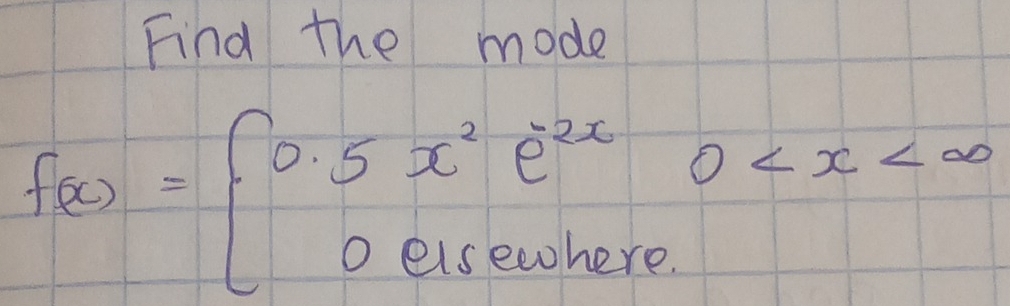 Find the mode
f(x) = { 0.5 x² e⁻²ˣ 0 < x < ∞
0 elsewhere.